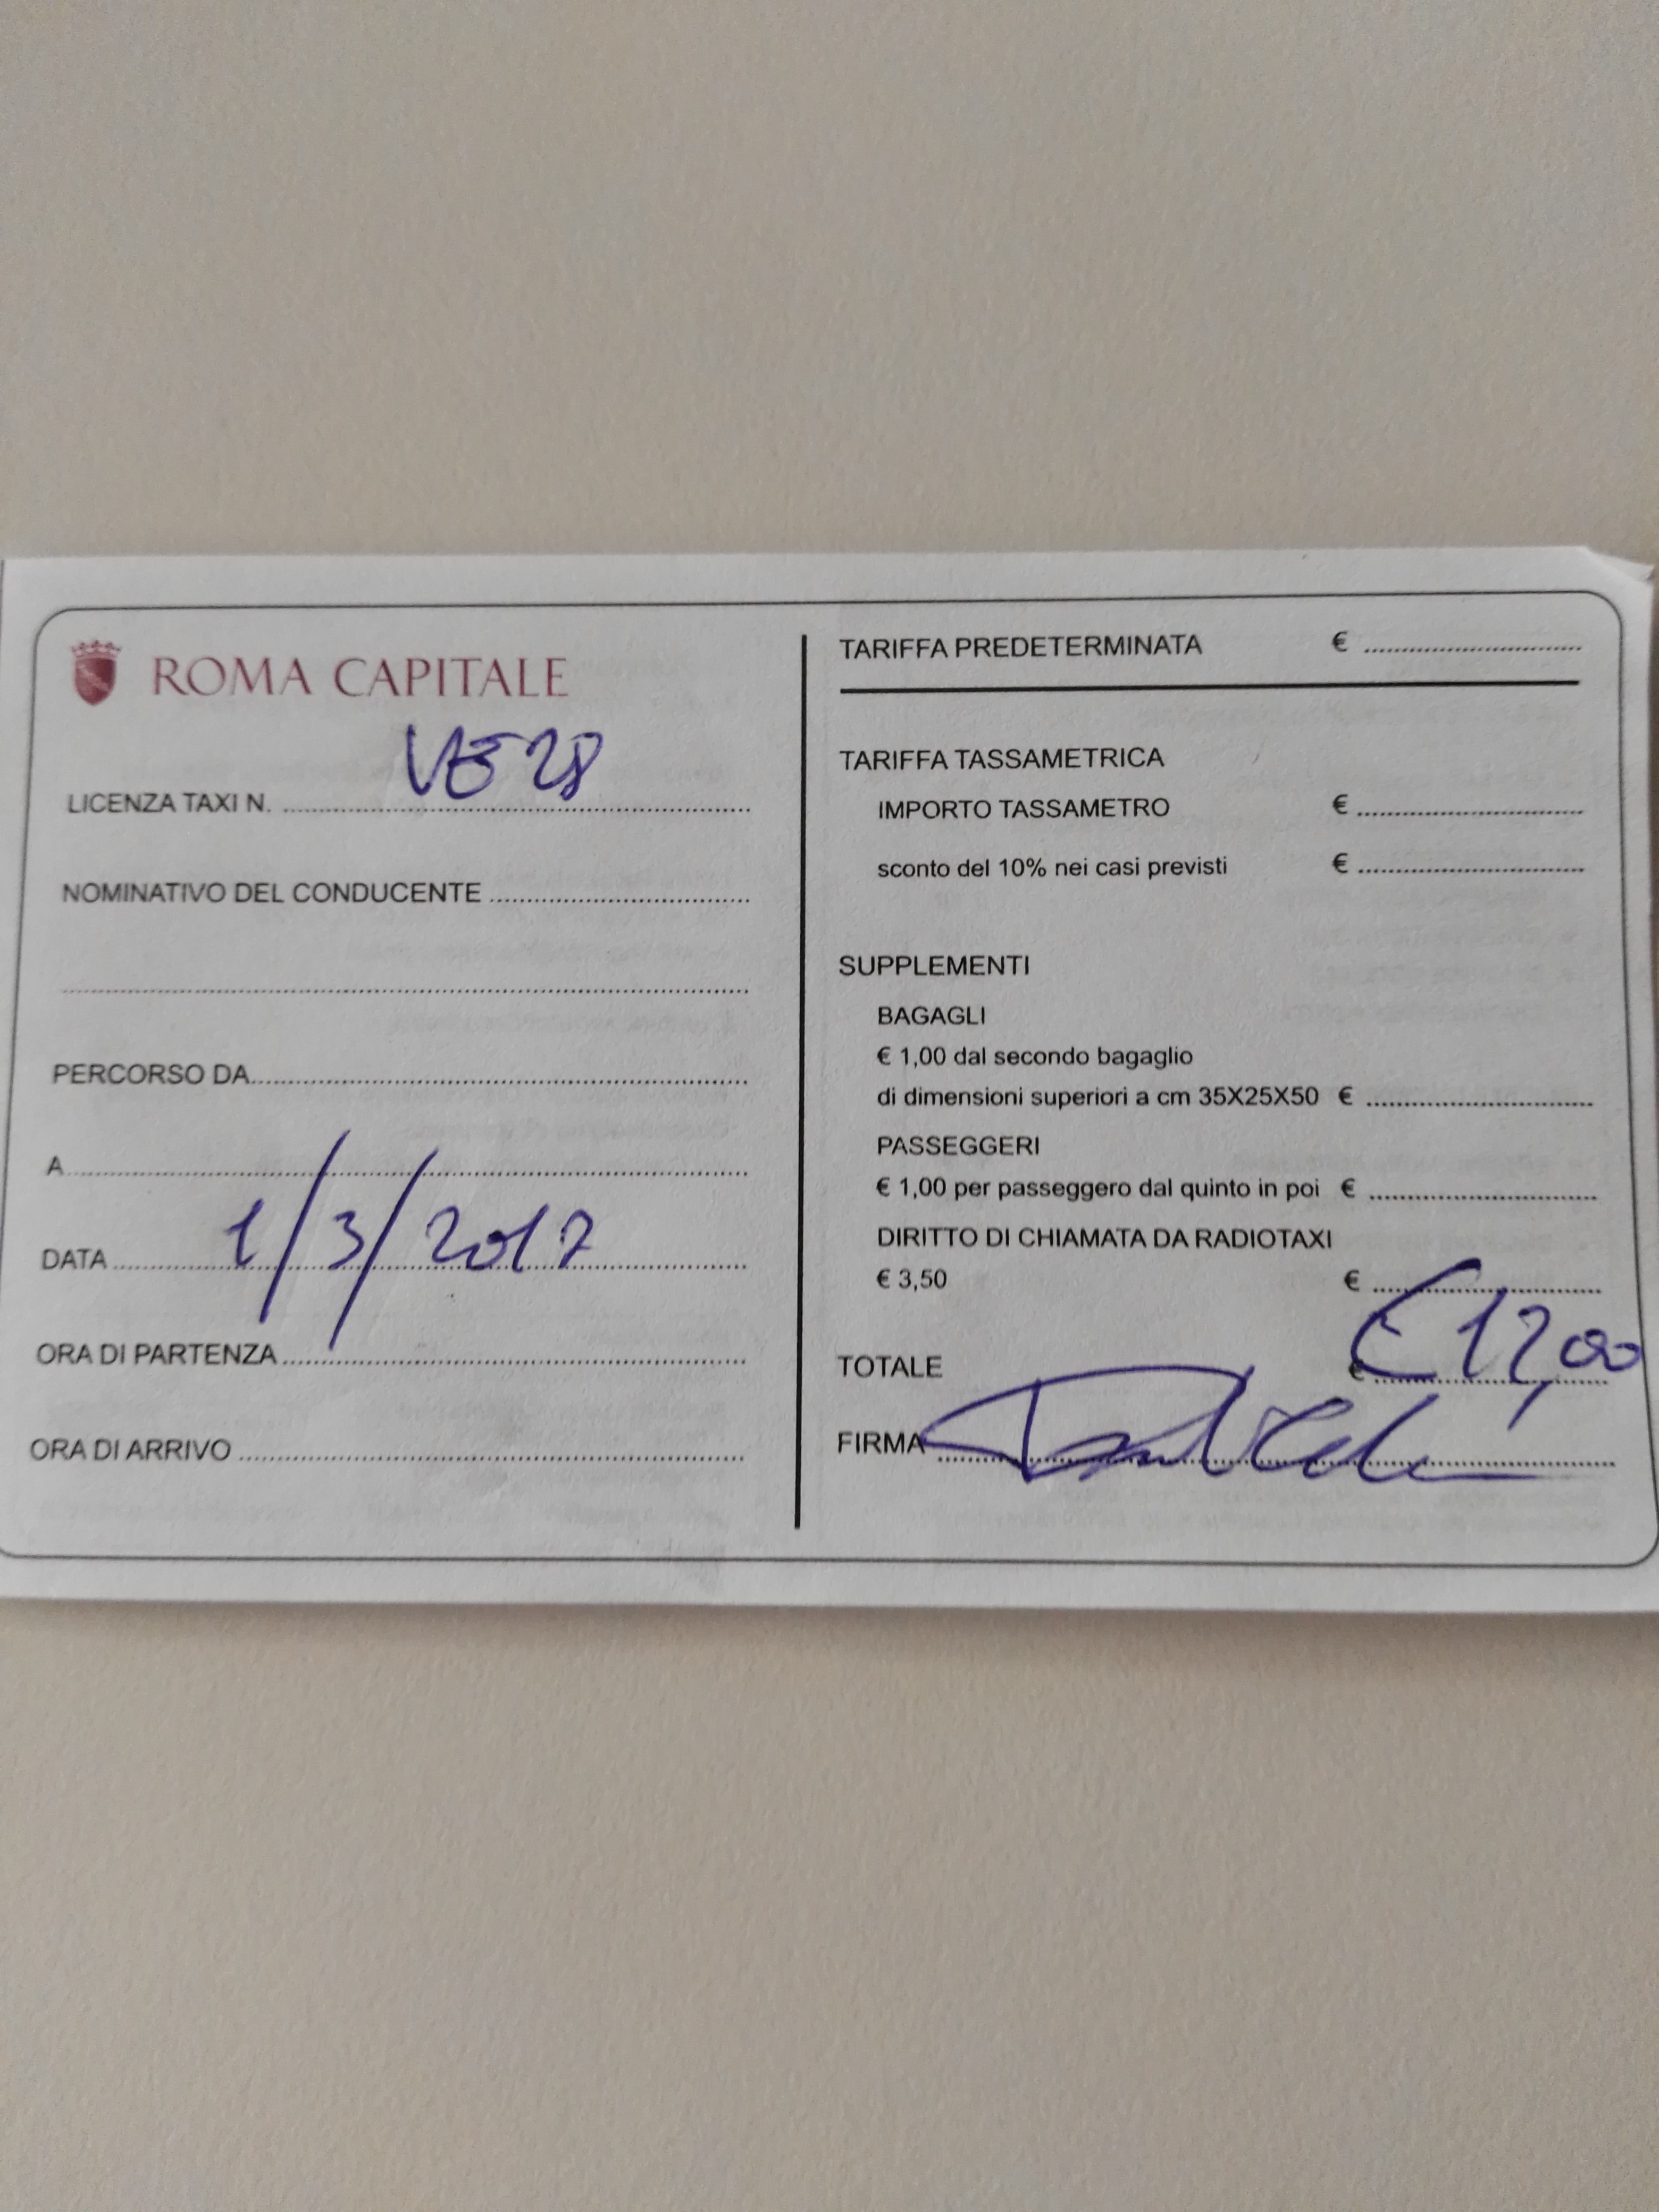 ROMA CAPITALE
LICENZA TAXI N. VE28
NOMINATIVO DEL CONDUCENTE
PERCORSO DA
A
DATA 1/3/2017
ORA DI PARTENZA
ORA DI ARRIVO
TARIFFA PREDETERMINATA €
TARIFFA TASSAMETRICA
IMPORTO TASSAMETRO €
sconto del 10% nei casi previsti €
SUPPLEMENTI
BAGAGLI
€ 1,00 dal secondo bagaglio
di dimensioni superiori a cm 35X25X50 €
PASSEGGERI
€ 1,00 per passeggero dal quinto in poi €
DIRITTO DI CHIAMATA DA RADIOTAXI
€ 3,50 €
TOTALE €
FIRMA